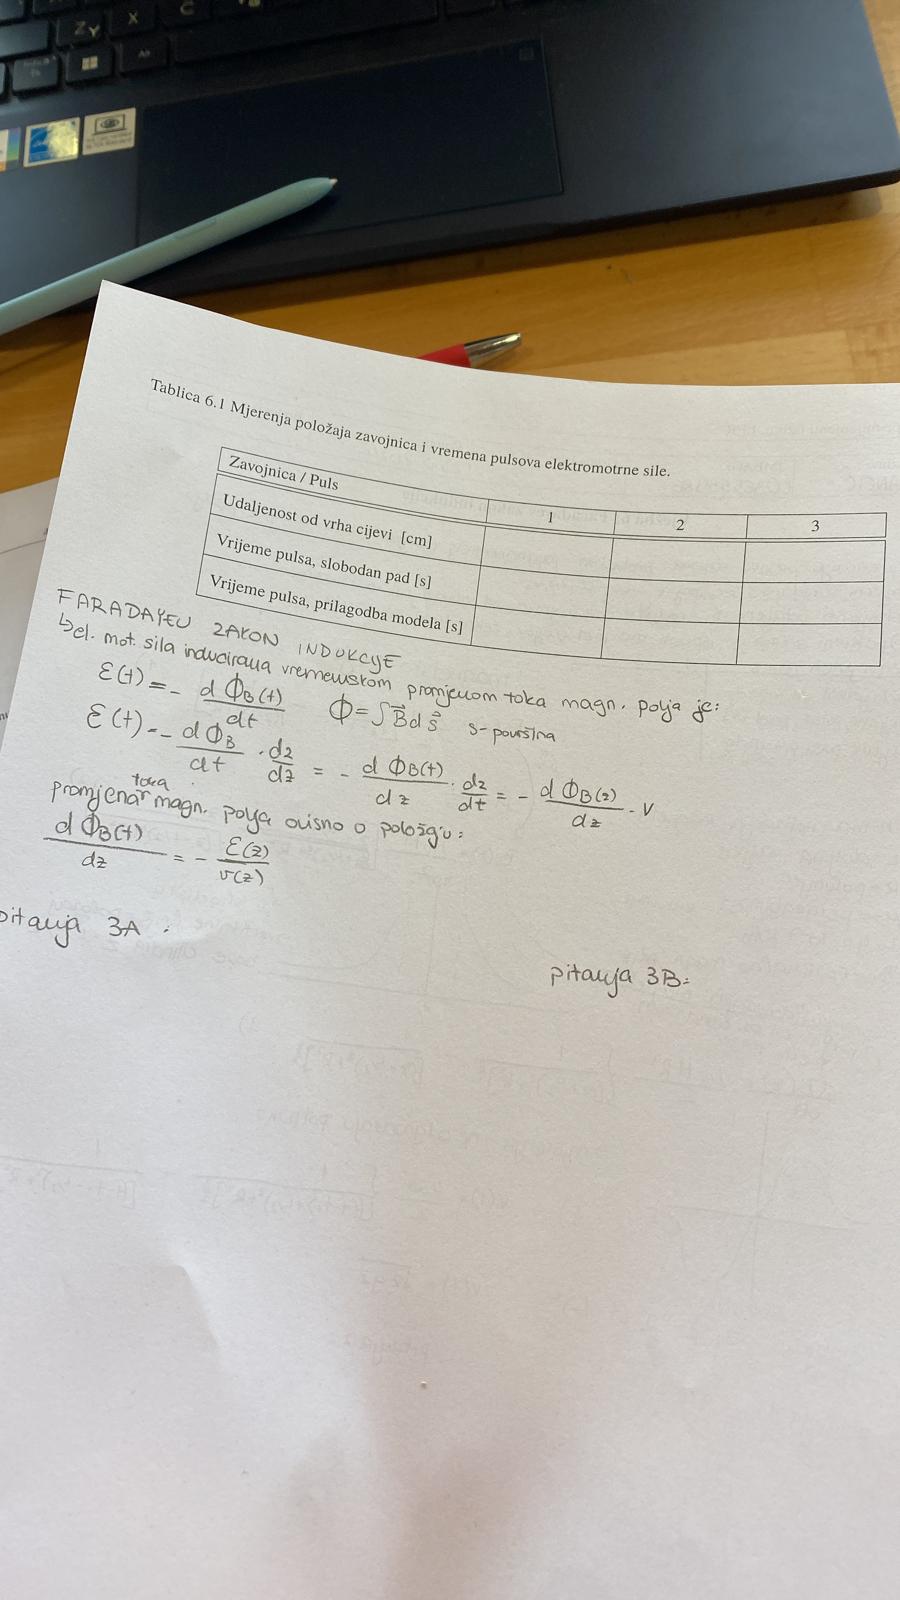 Tablica 6.1 Mjerenja položaja zavojnica i vremena pulsova elektromotrne sile.
Zavojnica / Puls 1 2 3
Udaljenost od vrha cijevi [cm]
Vrijeme pulsa, slobodan pad [s]
Vrijeme pulsa, prilagodba modela [s]
FARADAYEV ZAKON INDUKCIJE
↳ el. mot. sila inducirana vremenskom promjenom toka magn. polja je:
ε(t) = - dΦB(t)/dt Φ = ∫B⃗ds⃗ s - površina
ε(t) = - dΦB/dt · dz/dz = - dΦB(t)/dz · dz/dt = - dΦB(z)/dz · v
promjena toka magn. polja ovisno o položaju:
dΦB(t)/dz = - ε(z)/v(z)
pitanja 3A:
pitanja 3B: